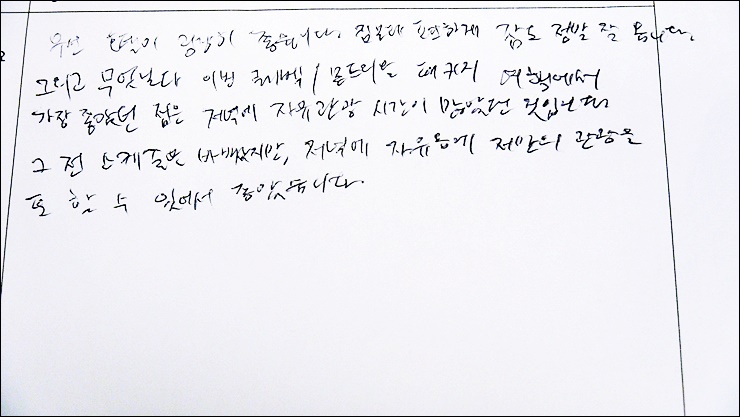 우선 호텔이 굉장히 좋습니다. 집보다 포근하게 잠도 정말 잘 옵니다.
그리고 무엇보다 이번 퀘벡/몬트리올 패키지 여행에서
가장 좋았던 점은 저녁에 자유관광 시간이 많았던 것입니다
그 전 스케줄은 바빴지만, 저녁에 자유롭게 저만의 관광을
또 할 수 있어서 좋았습니다.